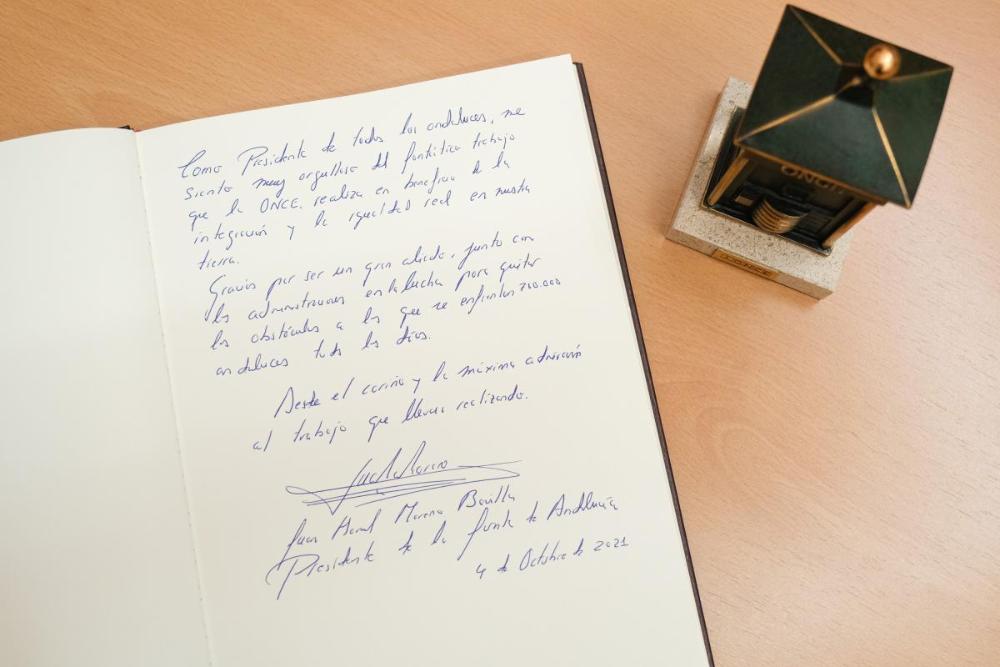 Como Presidente de todos los andaluces, me
siento muy orgulloso del fantástico trabajo
que la ONCE, realiza en beneficio de la
integración y la igualdad real en nuestra
tierra.
Gracias por ser un gran aliado, junto con
las administraciones en la lucha para quitar
los obstáculos a los que se enfrentan 700.000
andaluces todos los días.
Desde el cariño y la máxima admiración
al trabajo que lleváis realizando.
Juan Manuel Moreno Bonilla
Presidente de la Junta de Andalucía
4 de Octubre de 2021
ONCE
ONCE